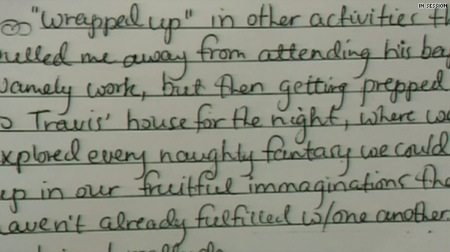 IN SESSION
so "wrapped up" in other activities th
pulled me away from attending his be
namely work, but then getting prepped
o Travis' house for the night, where we
explored every naughty fantasy we could
up in our fruitful immaginations tha
haven't already fulfilled w/one another